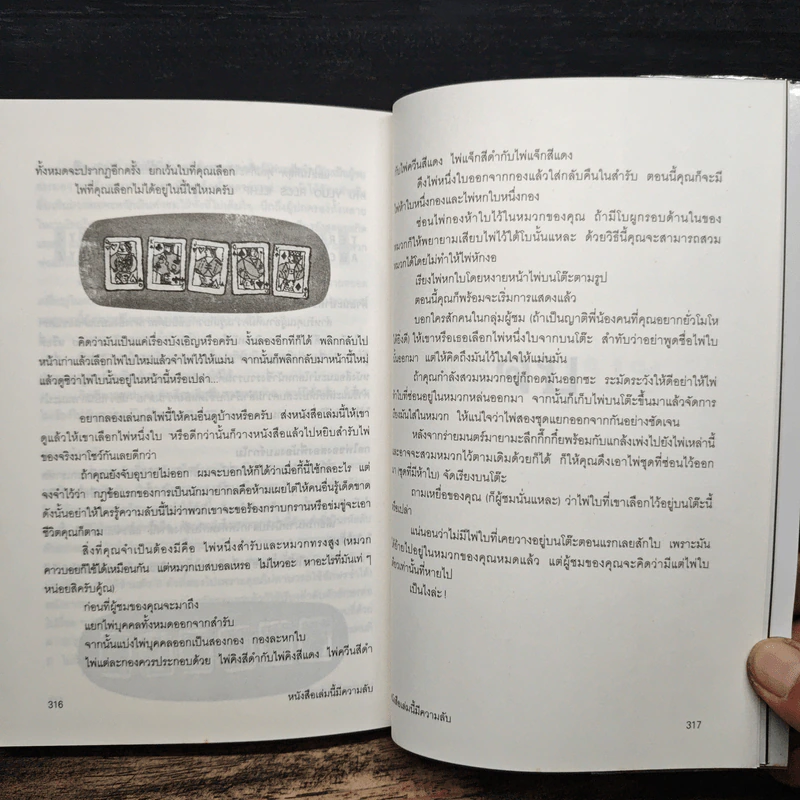 ทั้งหมดจะปรากฏอีกครั้ง ยกเว้นใบที่คุณเลือก
ไพ่ที่คุณเลือกไม่ได้อยู่ในนี้ใช่ไหมครับ
คิดว่ามันเป็นแค่เรื่องบังเอิญหรือครับ งั้นลองอีกทีก็ได้ พลิกกลับไป
หน้าเก่าแล้วเลือกไพ่ใบใหม่แล้วจำไพ่ไว้ให้แม่น จากนั้นก็พลิกกลับมาหน้านี้ใหม่
แล้วดูซิว่าไพ่ใบนั้นอยู่ในหน้านี้หรือเปล่า...
อยากลองเล่นกลไพ่นี้ให้คนอื่นดูบ้างหรือครับ ส่งหนังสือเล่มนี้ให้เขา
ดูแล้วให้เขาเลือกไพ่หนึ่งใบ หรือดีกว่านั้นก็วางหนังสือแล้วไปหยิบสำรับไพ่
ของจริงมาโชว์กันเลยดีกว่า
ถ้าคุณยังจับอุบายไม่ออก ผมจะบอกให้ก็ได้ว่าเมื่อกี้นี้ใช้กลอะไร แต่
จงจำไว้ว่า กฎข้อแรกของการเป็นนักมายากลคือห้ามเผยไต๋ให้คนอื่นรู้เด็ดขาด
ดังนั้นอย่าให้ใครรู้ความลับนี้ไม่ว่าพวกเขาจะขอร้องกราบกรานหรือข่มขู่จะเอา
ชีวิตคุณก็ตาม
สิ่งที่คุณจำเป็นต้องมีคือ ไพ่หนึ่งสำรับและหมวกทรงสูง (หมวก
คาวบอยก็ใช้ได้เหมือนกัน แต่หมวกเบสบอลเหรอ ไม่ไหวอะ หาอะไรที่มันเท่ ๆ
หน่อยสิครับคู้ณ)
ก่อนที่ผู้ชมของคุณจะมาถึง
แยกไพ่บุคคลทั้งหมดออกจากสำรับ
จากนั้นแบ่งไพ่บุคคลออกเป็นสองกอง กองละหกใบ
ไพ่แต่ละกองควรประกอบด้วย ไพ่คิงสีดำกับไพ่คิงสีแดง ไพ่ควีนสีดำ
316
หนังสือเล่มนี้มีความลับ
กับไพ่ควีนสีแดง ไพ่แจ็กสีดำกับไพ่แจ็กสีแดง
ดึงไพ่หนึ่งใบออกจากกองแล้วใส่กลับคืนในสำรับ ตอนนี้คุณก็จะมี
ไพ่ห้าใบหนึ่งกองและไพ่หกใบหนึ่งกอง
ซ่อนไพ่กองห้าใบไว้ในหมวกของคุณ ถ้ามีโบผูกรอบด้านในของ
หมวกก็ให้พยายามเสียบไพ่ไว้ใต้โบนั้นแหละ ด้วยวิธีนี้คุณจะสามารถสวม
หมวกได้โดยไม่ทำให้ไพ่หักงอ
เรียงไพ่หกใบโดยหงายหน้าไพ่บนโต๊ะตามรูป
ตอนนี้คุณก็พร้อมจะเริ่มการแสดงแล้ว
บอกใครสักคนในกลุ่มผู้ชม (ถ้าเป็นญาติพี่น้องคนที่คุณอยากยั่วโมโห
ได้ยิ่งดี) ให้เขาหรือเธอเลือกไพ่หนึ่งใบจากบนโต๊ะ สำทับว่าอย่าพูดชื่อไพ่ใบ
นั้นออกมา แต่ให้คิดถึงมันไว้ในใจให้แม่นมั่น
ถ้าคุณกำลังสวมหมวกอยู่ก็ถอดมันออกซะ ระมัดระวังให้ดีอย่าให้ไพ่
ห้าใบที่ซ่อนอยู่ในหมวกหล่นออกมา จากนั้นก็เก็บไพ่บนโต๊ะขึ้นมาแล้วจัดการ
ใส่มันใส่ในหมวก ให้แน่ใจว่าไพ่สองชุดแยกออกจากกันอย่างชัดเจน
หลังจากร่ายมนตร์มายามะลึกกึ๊กกึ๋ยพร้อมกับแกล้งเพ่งไปยังไพ่เหล่านี้
และอาจจะสวมหมวกไว้ตามเดิมด้วยก็ได้ ก็ให้คุณดึงเอาไพ่ชุดที่ซ่อนไว้ออก
มา (ชุดที่มีห้าใบ) จัดเรียงบนโต๊ะ
ถามเหยื่อของคุณ (ก็ผู้ชมนั่นแหละ) ว่าไพ่ใบที่เขาเลือกไว้อยู่บนโต๊ะนี้
หรือเปล่า
แน่นอนว่าไม่มีไพ่ใบที่เคยวางอยู่บนโต๊ะตอนแรกเลยสักใบ เพราะมัน
ได้ย้ายไปอยู่ในหมวกของคุณหมดแล้ว แต่ผู้ชมของคุณจะคิดว่ามีแต่ไพ่ใบ
เดียวเท่านั้นที่หายไป
เป็นไงล่ะ !
หนังสือเล่มนี้มีความลับ
317